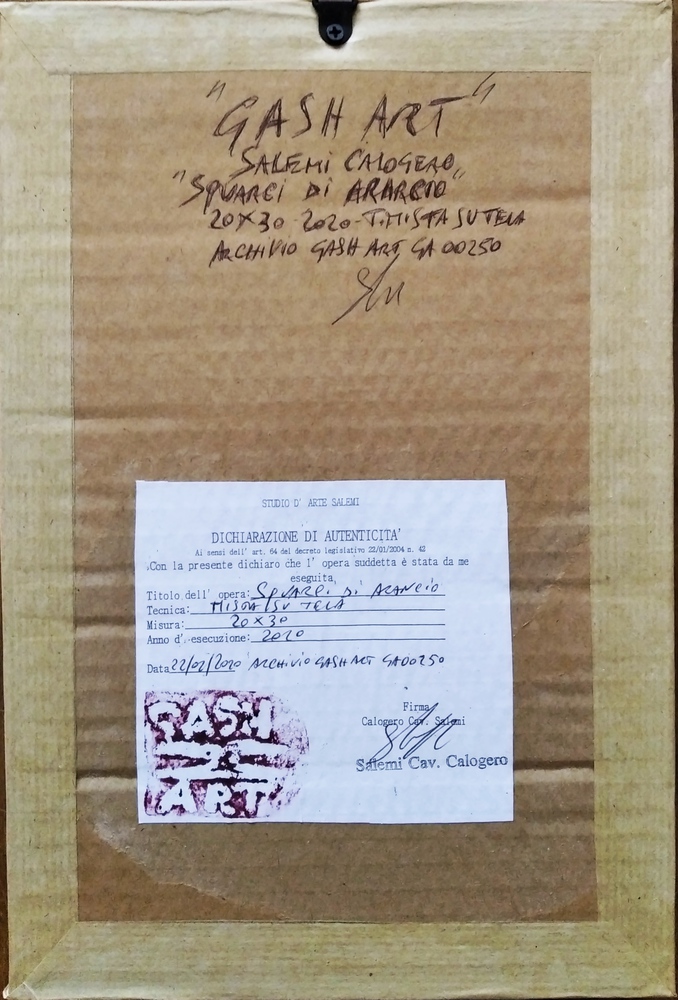 "GASH ART"
SALEMI CALOGERO
"SQUARCI DI ARANCIO"
20X30-2020-T.MISTA SU TELA
ARCHIVIO GASH ART GA 00250
STUDIO D' ARTE SALEMI
DICHIARAZIONE DI AUTENTICITA'
Ai sensi dell' art. 64 del decreto legislativo 22/01/2004 n. 42
Con la presente dichiaro che l' opera suddetta è stata da me
eseguita
Titolo dell' opera: SQUARCI DI ARANCIO
Tecnica: MISTA SU TELA
Misura: 20X30
Anno d' esecuzione: 2020
Data 22/02/2020 ARCHIVIO GASH ART GA00250
GASH
ART
Firma
Calogero Cav. Salemi
Salemi Cav. Calogero